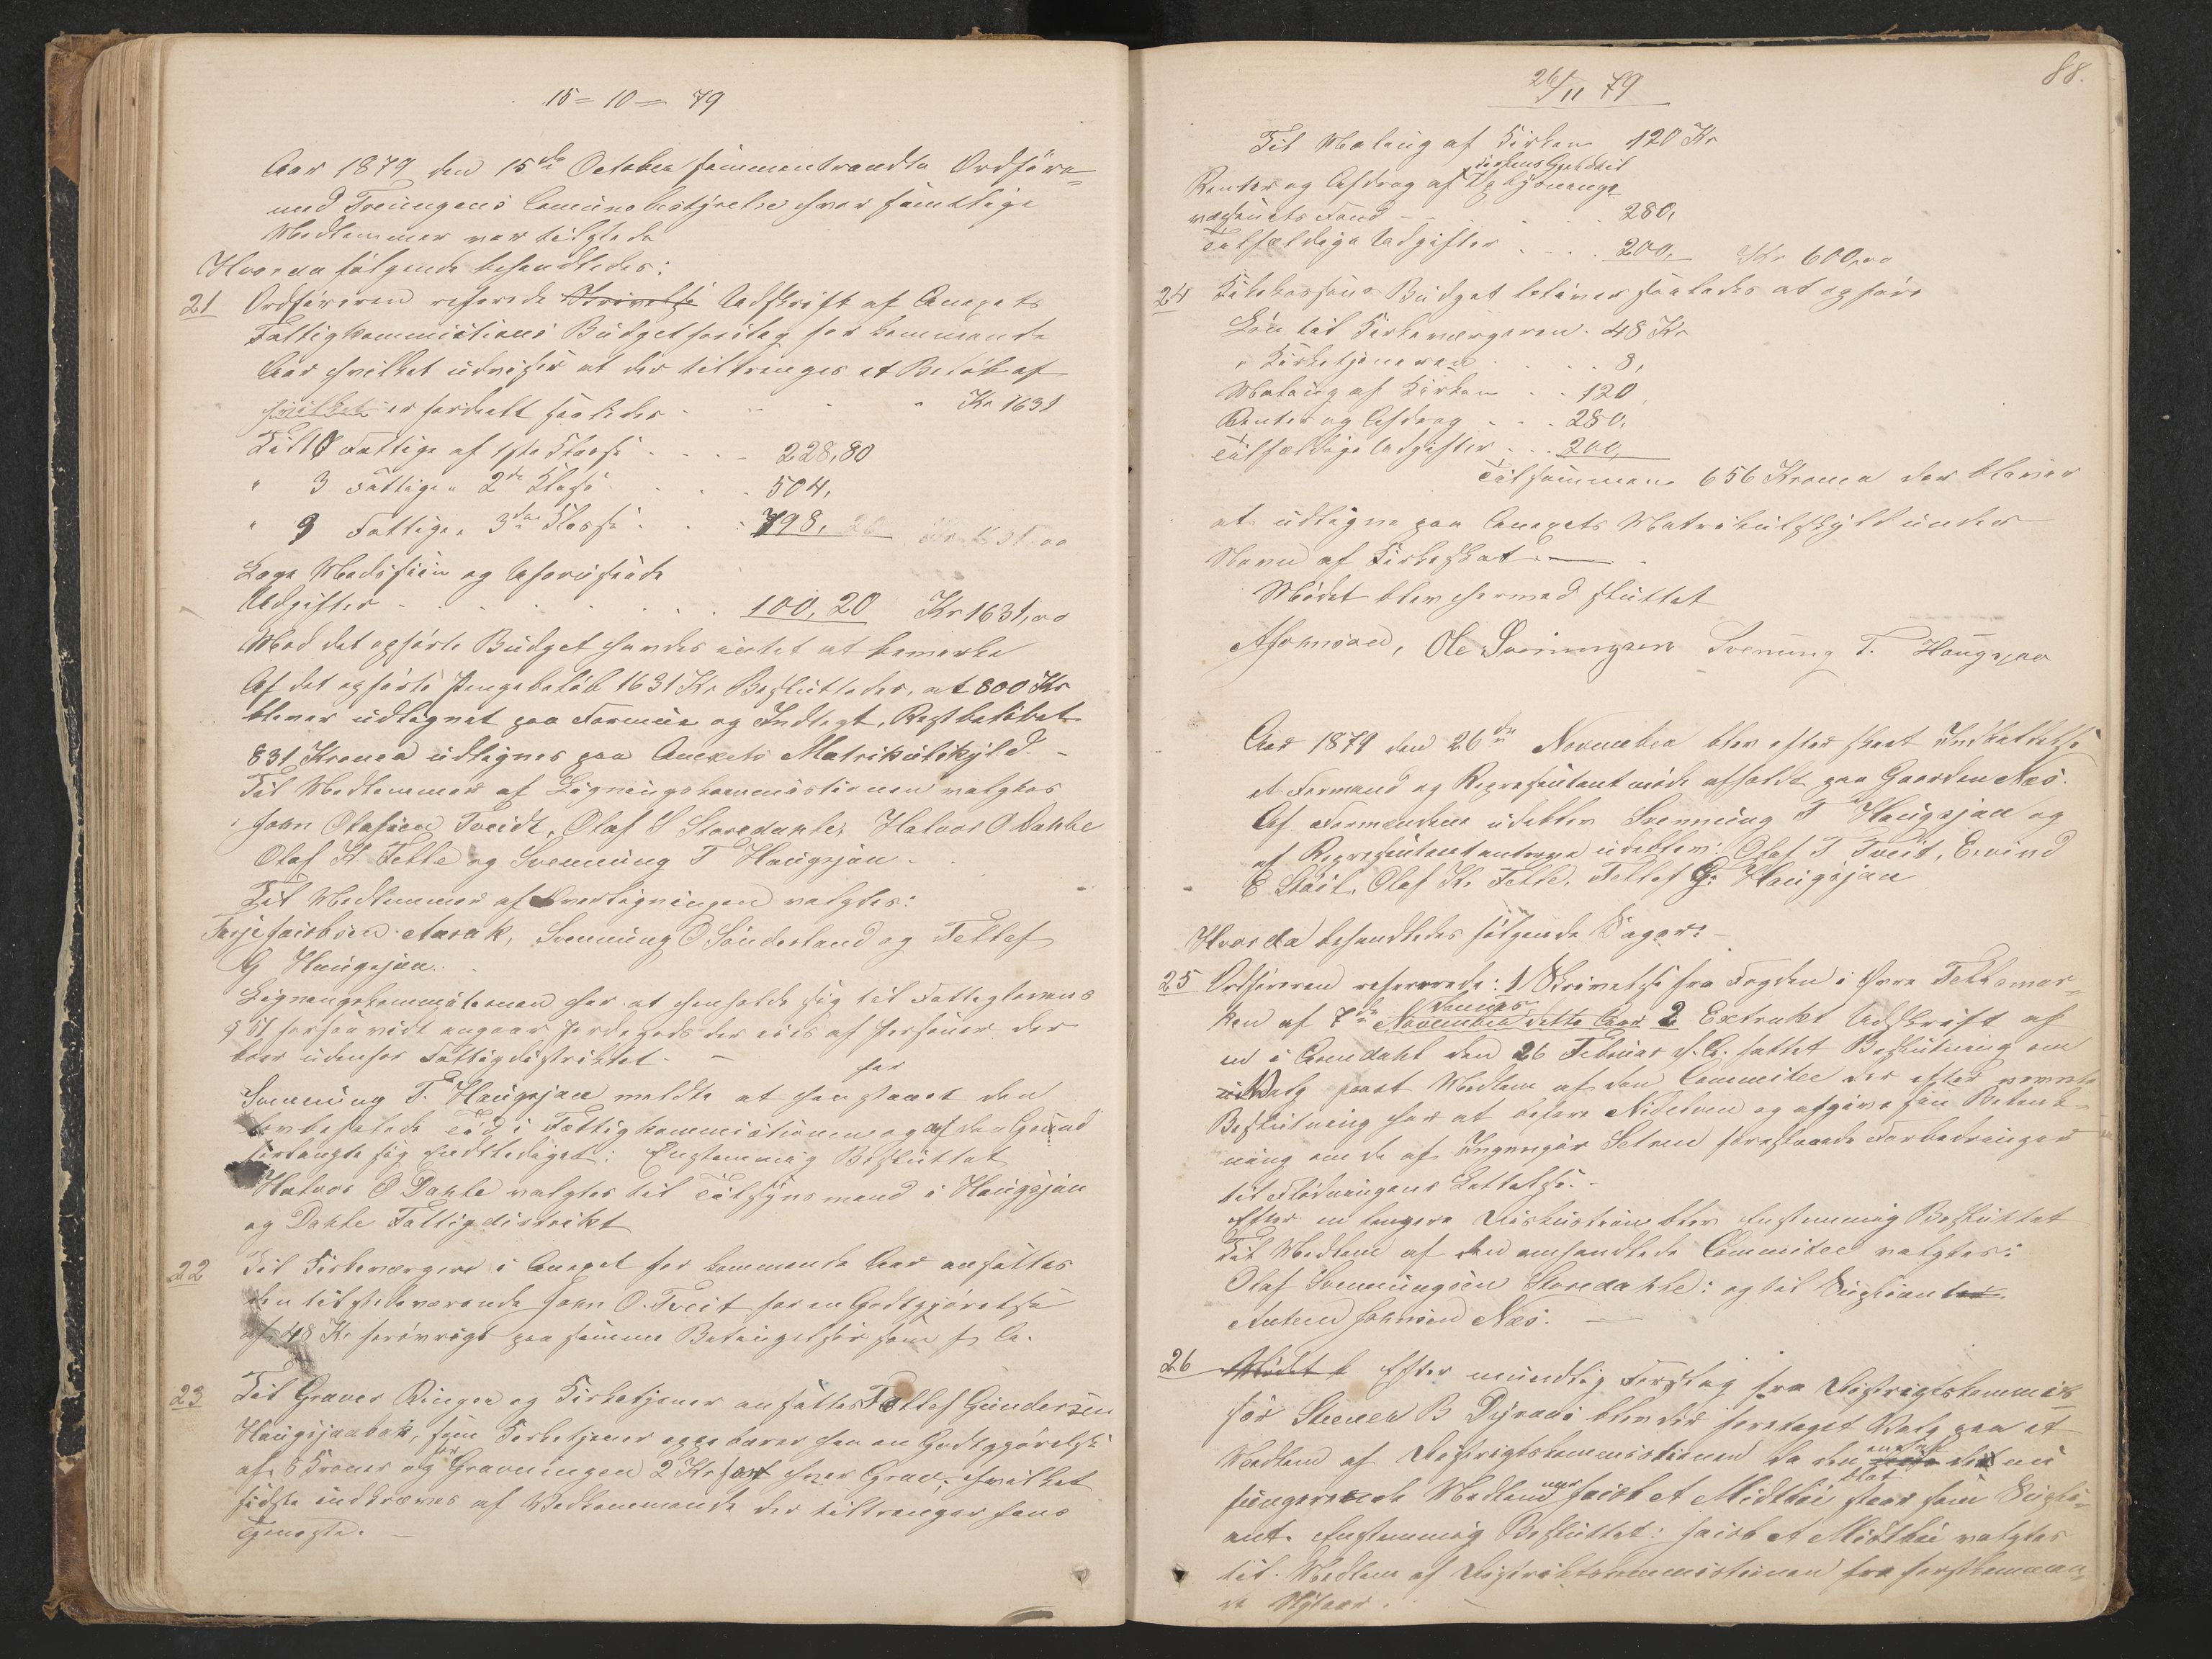 15 - 10 - 79
Aar 1879 den 15de October sammentraadte Ordföre-
med Treungens Comunebestyrelse hvor samtlige
Medlemmer var tilstede
Hvorda fölgende behandledes:
21 Ordföreren refererede Skrivelse Udskrift af Anexets
Fattigkommistions Budgetforslag for kommende
Aar hvilket udviser at der tiltrænges et Beløb af
hvilket er fordeelt saaledes Kr 1631
Til 10 Fattige af 1ste Klasse 228,80
" 3 Fattige " 2de Klasse 504,
" 9 Fattige " 3die Klasse 798,
Læge Medisin og uforudseede
Udgifter 100,20 Kr 1631,00
Mod det opførte Budget havdes intet at bemerke
Af det opførte Pengebeløb 1631 Kr Besluttedes, at 800 Kr
bliver udlignet paa Formue og Indtægt, Restbeløbet
831 Kroner udlignes paa Anexets Matrikulskyld. -
Til Medlemmer af Ligningskommistionen valgtes
John Olafsen Tveidt, Olaf S Storedahle, Halvor O Dahle
Olaf H. Felle og Svenning T Haugsjaa -
Til Medlemmer af Overligningen valgtes:
Tarje Jacobsen Aasak, Svenning O Sønderland og Tellef
G Haugsjaa.
Ligningskommistionen har at henholde sig til Fattiglovens
§ 51 forsaavidt angaar Jordegods der eies af Personer der
boer udenfor Fattigdistriktet. -
har
Svenning T. Haugsjaa meldte at han staaet den
lovbefalede Tid i Fattigkommistionen og af den Grund
forlangte sig fratlediget: Enstemmig Besluttet
Halvor O Dahle valgtes til Tilsynsmand i Haugsjaa
og Dahle Fattigdistrikt
22 Til Kirkeværger i Anexet for kommende Aar ansattes
den tilstedeværende John O. Tveit for en Godtgjørelse
af 48 Kr forøvrigt paa samme Betingelser som f. A.
23 Til Graver Ringer og Kirketjener ansattes Tellef Gundersen
Haugsjaabak, som Kirketjener oppebærer han en Godtgjørelse
af 8 Kroner og for Gravningen 2 Kr for hver Grav, hvilket
sidste indkræves af Vedkommende der tiltrænger hans
Tjeneste. -
26/11 79
88.
Til Maling af Kirken 120 Kr
Renter og Afdrag af Oplysnings-
væsnets Fond 280,
Tilfældige Udgifter 200, Kr 600,00
24 Kirkekassens Budget bliver saaledes at opføre
Løn til Kirkeværgeren. 48 Kr
" Kirketjeneren 8,
Maling af Kirken 120
Renter og Afdrag 280,
Tilfældige Udgifter 200,
Tilsammen 656 Kroner der bliver
at udligne paa Anexets Matrikulskyld under
Navn af Kirkeskat
Mødet blev hermed sluttet
Ole Svenningsen Svenning T. Haugsjaa
Aar 1879 den 26de November blev efter skeet Indkaldelse
et Formand og Representantmøde afholdt paa Gaarden Næs.
Af Formændene udeblev Svenning T Haugsjaa og
af Representanterne udeblev: Olaf T Tveit, Eivind
E Olaf H. Felle, Tellef G. Haugsjaa
Hvorda behandledes følgende Sager: -
25 Ordføreren refererede: 1 Skrivelse fra Fogden i Øvre Tellemar-
ken af 7de November dette Aar 2 Extrakt Udskrift af
en i Arendahl den 26 Februar d. A. fattet Beslutning om
Valg paa et Medlem af den Committee der efter nævnte
Beslutning har at befare Nidelven og afgive sin Betænk-
ning om de af Ingeniør Sætren foreslaaede Forbedringer
til Flødningens Lettelse. -
Efter en længere Diskustion blev Enstemmig Besluttet
Til Medlem af den omhandlede Committee valgtes:
Olaf Svenningsen Storedahle: og til Supleant
Anten Johnsen Næs. -
26 Mødet b Efter mundlig Forslag fra Distrigtskommis-
sør Steener B Dyraas blev der foretaget Valg paa et
Medlem af Distrigtskommistionen da den nu
fungerende Medlem Jacob A Midtbø blot staar som Suple-
ant. Enstemmig Besluttet: Jacob A Midtbø valgtes
til Medlem af Distriktskommistionen for førstkommen-
de